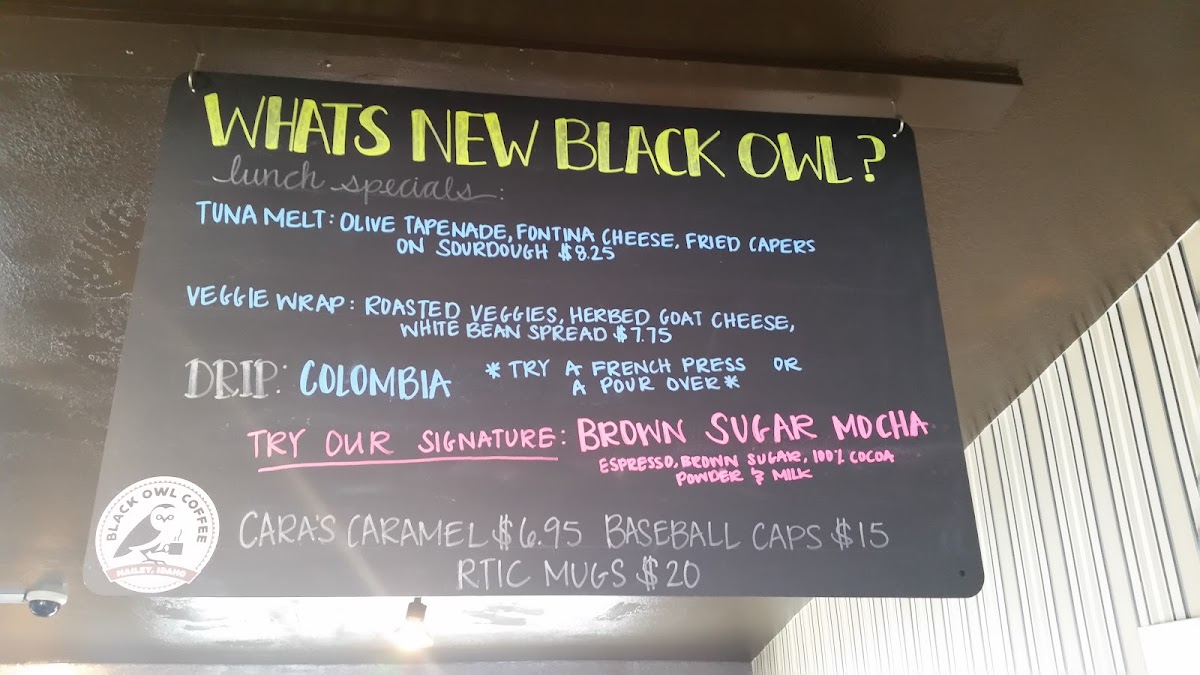 WHATS NEW BLACK OWL?
lunch specials:
TUNA MELT: OLIVE TAPENADE, FONTINA CHEESE, FRIED CAPERS
ON SOURDOUGH $8.25
VEGGIE WRAP: ROASTED VEGGIES, HERBED GOAT CHEESE,
WHITE BEAN SPREAD $7.75
DRIP: COLOMBIA
*TRY A FRENCH PRESS OR
A POUR OVER*
TRY OUR SIGNATURE: BROWN SUGAR MOCHA
ESPRESSO, BROWN SUGAR, 100% COCOA
POWDER & MILK
BLACK OWL COFFEE
HAILEY, IDAHO
CARA'S CARAMEL $6.95 BASEBALL CAPS $15
RTIC MUGS $20